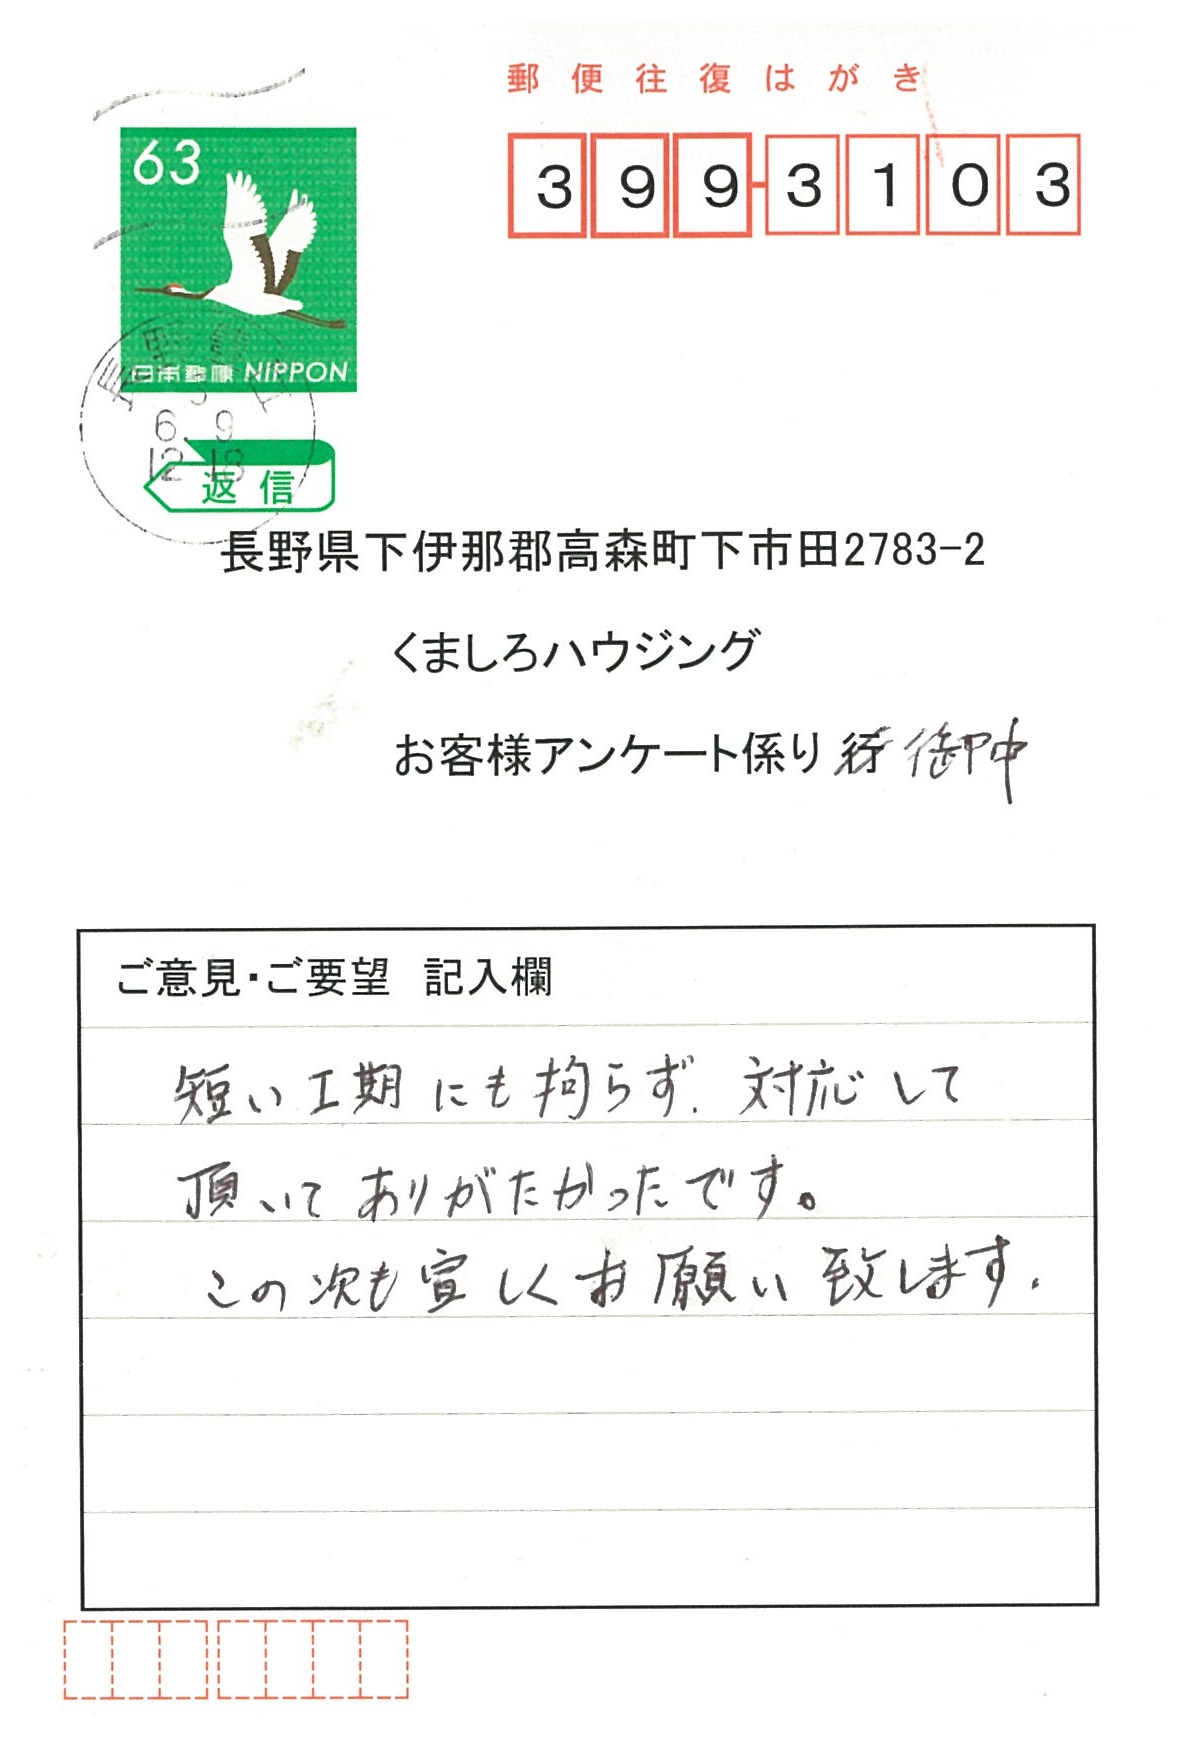 郵便往復はがき
63
399-3103
日本郵便 NIPPON
6. 9
12-18
返信
長野県下伊那郡高森町下市田2783-2
くましろハウジング
お客様アンケート係り 行 御中
ご意見・ご要望 記入欄
短い工期にも拘らず、対応して
頂いてありがたかったです。
この次も宜しくお願い致します.